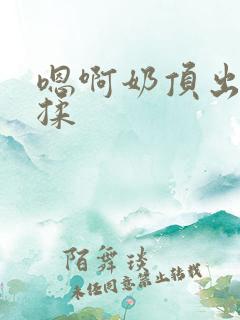 嗯啊奶頂出
揉
陌舞琰
未经同意禁止转载